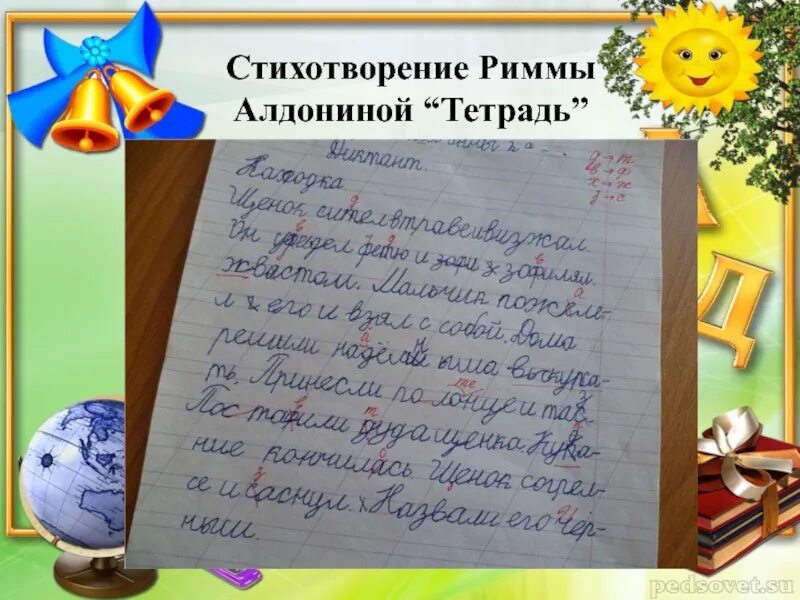 Стихотворение Риммы
Алдониной “Тетрадь”
Диктант.
д→т
в→ф
х→ж
з→с
Находка.
Щенок сителвтравеивизжал.
Он фетю и зафилял
жвастом. Мальчик пожеле-
л его и взял с собой. Дома
решили надёлй ыша выкупа-
ть. Принесли полонце и таз.
Поставили туда щенка. Купа-
ние кончилась. Щенок согрел-
се и саснул. Назвали его Чёр-
ныш.
Д
pedsovet.su